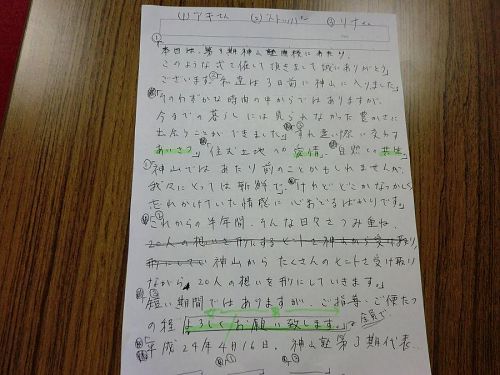 (1) アキさん (2) ストッパー (3) リナさん
①「本日は、第3期神山塾開校にあたり、
このような式を催して頂きまして誠にありがとう
ございます」②「私達は3日前に神山に入りました」
「そのわずかな時間の中からではありますが、
今までの暮らしには見られなかった豊かさに
出会うことができました」「すれ違い際に交わす
あいさつ」「住む土地への愛情」「自然との共生」
「神山ではあたり前のことかもしれませんが、
我々にとっては新鮮で」「けれどどこかなつかしい
忘れかけていた情感に心おどるばかりです」
「これからの半年間、そんな日々をつみ重ね
20人の想いを形にするヒントを神山から受け取り、
形にしていき 神山からたくさんのヒントを受け取り
ながら、20人の想いを形にしていきます」
短い期間ではありますが、ご指導・ご便たつ
の程「よろしくお願い致します。」全員で
平成24年4月16日、神山塾第3期代表